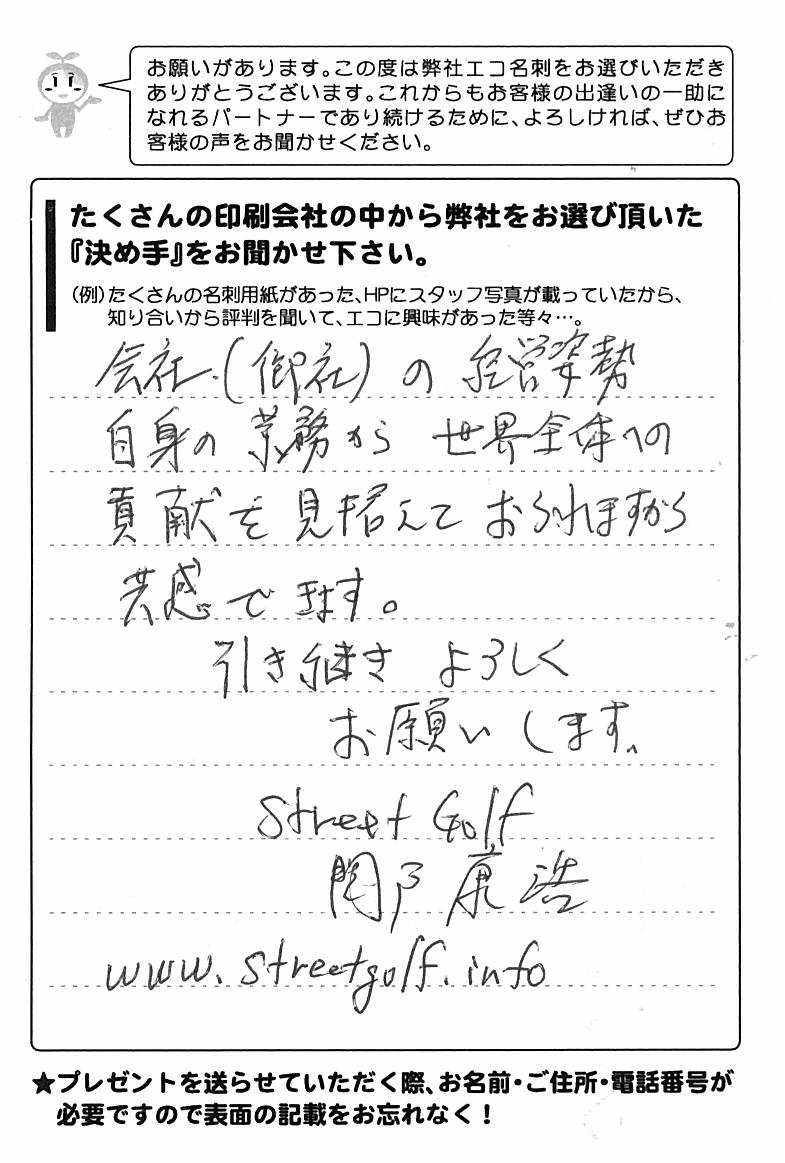 お願いがあります。この度は弊社エコ名刺をお選びいただき
ありがとうございます。これからもお客様の出逢いの一助に
なれるパートナーであり続けるために、よろしければ、ぜひお
客様の声をお聞かせください。
たくさんの印刷会社の中から弊社をお選び頂いた
『決め手』をお聞かせ下さい。
（例）たくさんの名刺用紙があった、HPにスタッフ写真が載っていたから、
知り合いから評判を聞いて、エコに興味があった等々…。
会社.(御社)の 経営姿勢
自身の業務から 世界全体への
貢献を見据えて おられますから
共感できます。
引き継き よろしく
お願いします。
Street Golf
関戸康浩
www.streetgolf.info
★プレゼントを送らせていただく際、お名前・ご住所・電話番号が
必要ですので表面の記載をお忘れなく！